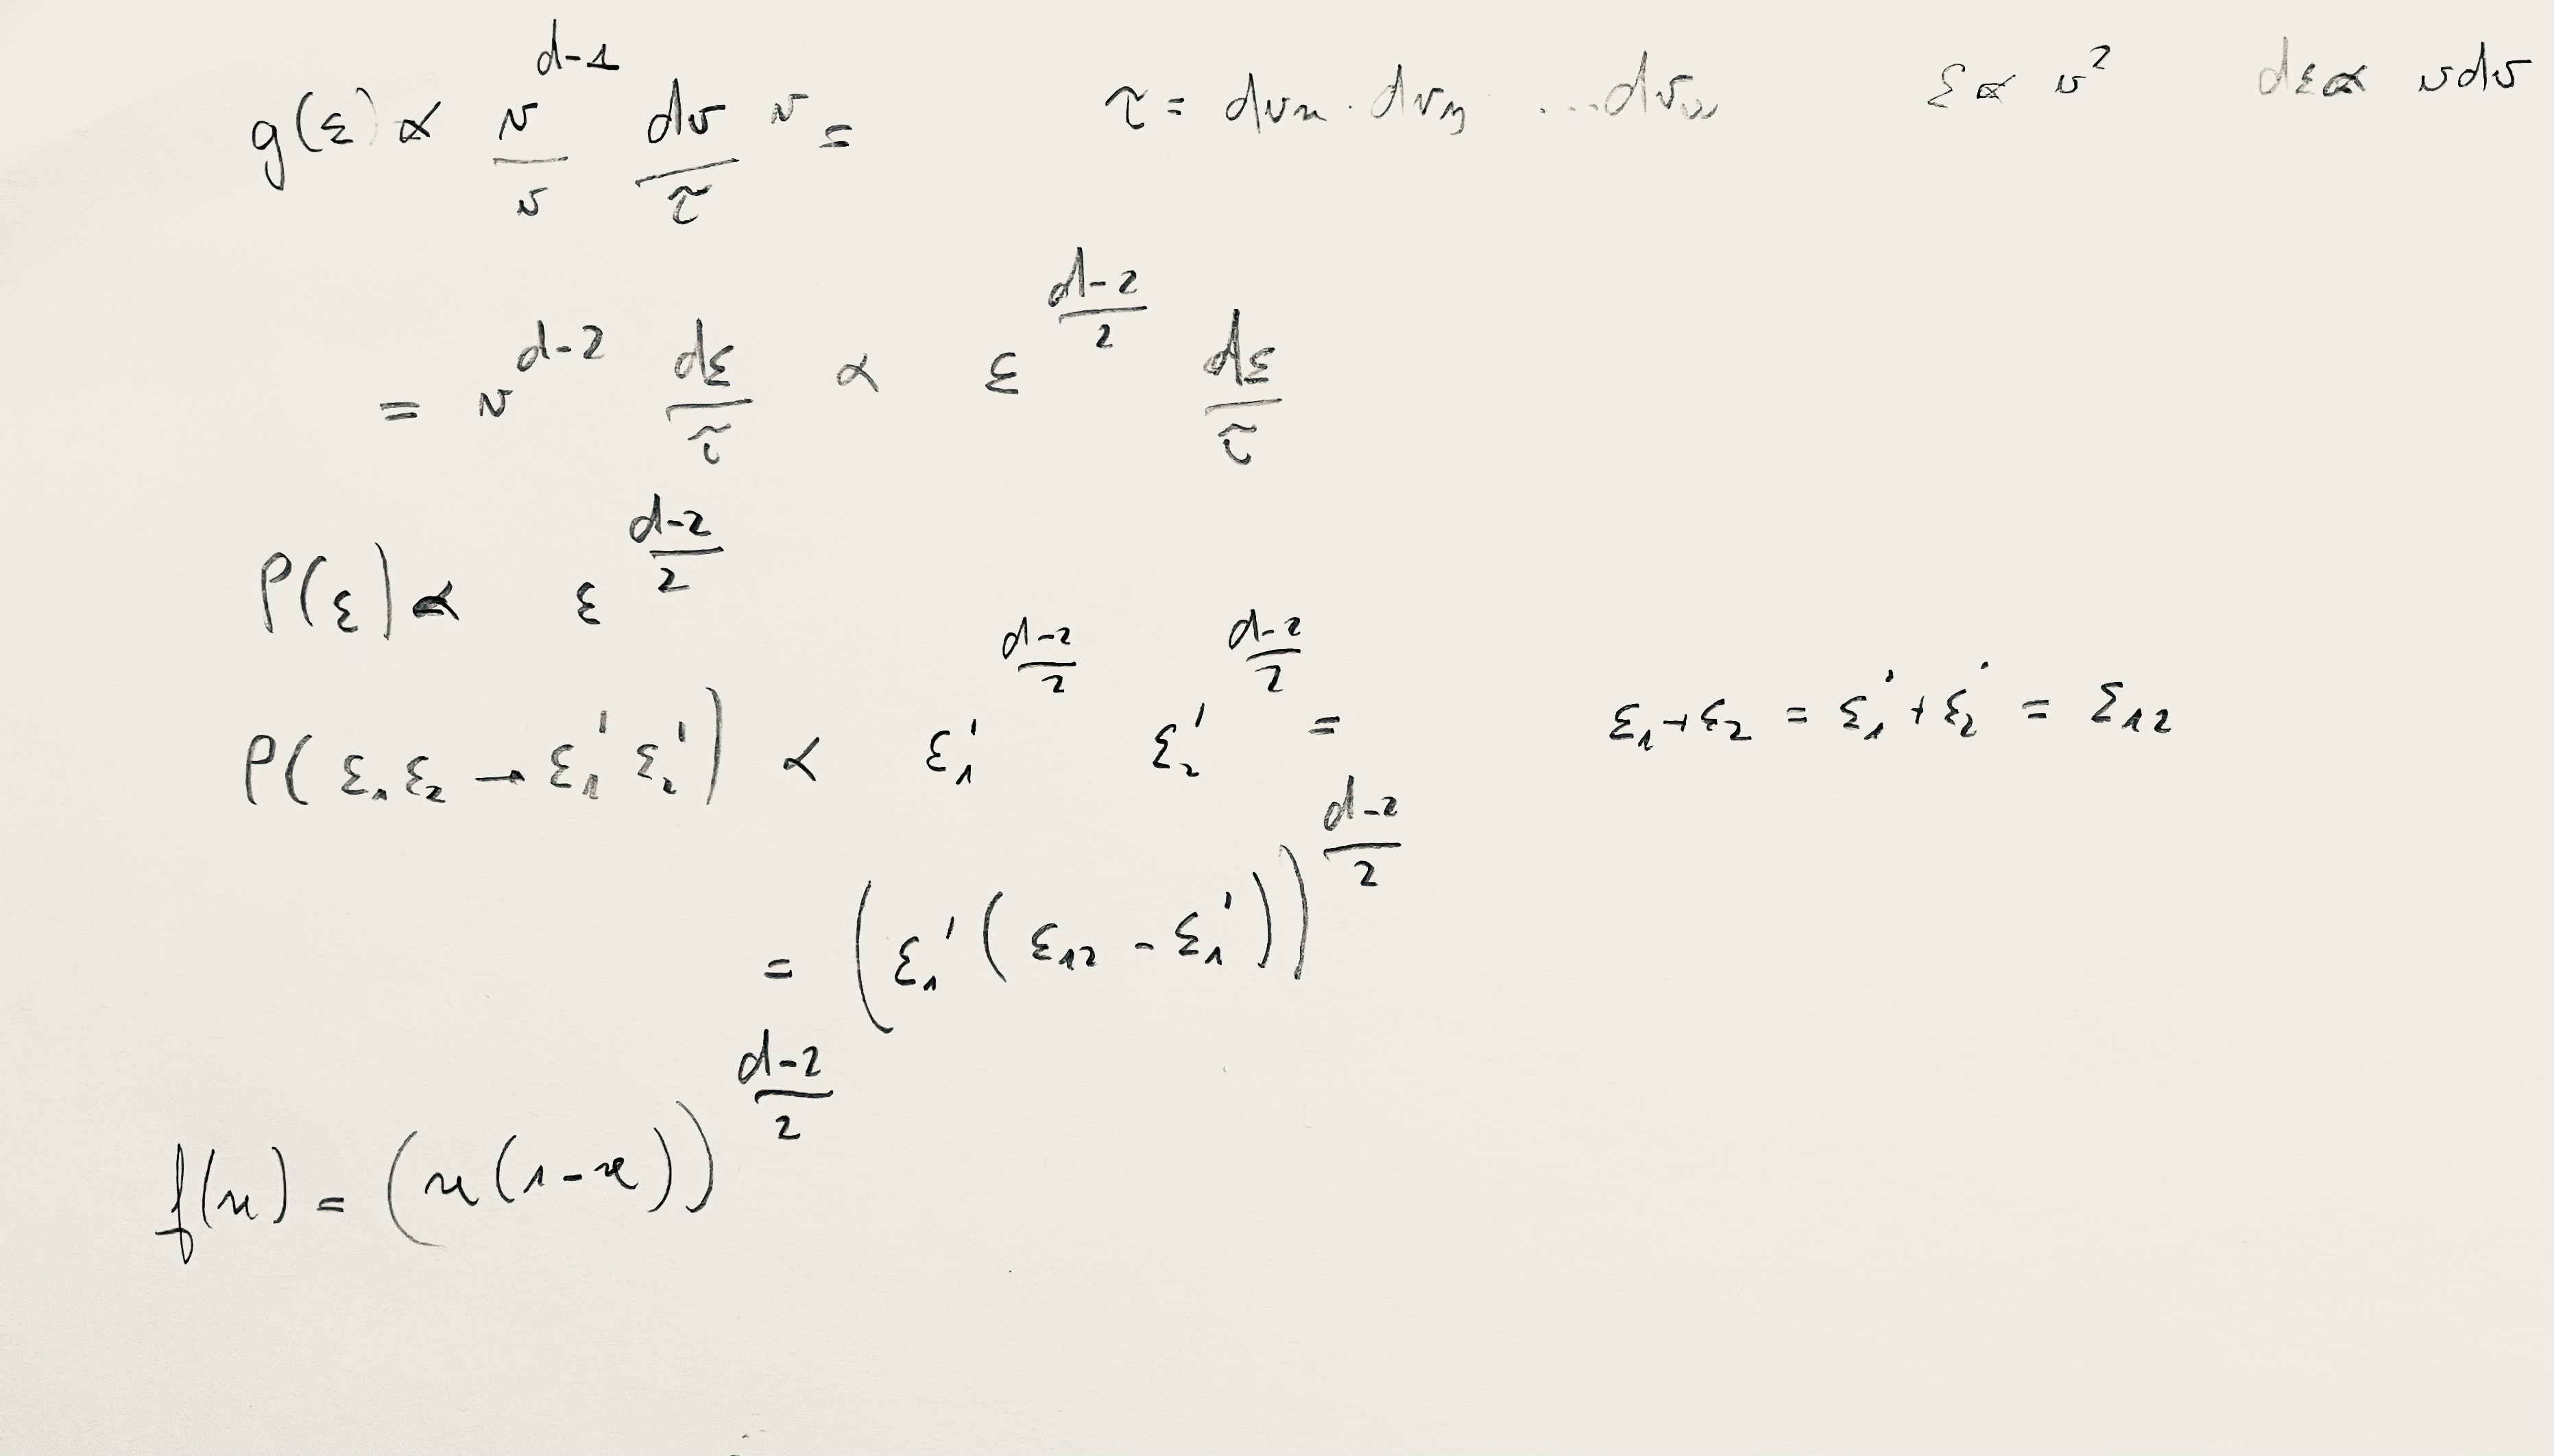 g(ε) ∝ v^{d-1}/v dv/τ v =    τ = dv_x · dv_y ... dv_w    ε ∝ v²    dε ∝ v dv
= v^{d-2} dε/τ ∝ ε^{(d-2)/2} dε/τ
P(ε) ∝ ε^{(d-2)/2}
P(ε₁ε₂ → ε₁'ε₂') ∝ ε₁'^{(d-2)/2} ε₂'^{(d-2)/2} =    ε₁+ε₂ = ε₁'+ε₂' = ε₁₂
= (ε₁'(ε₁₂ - ε₁'))^{(d-2)/2}
f(x) = (x(1-x))^{(d-2)/2}